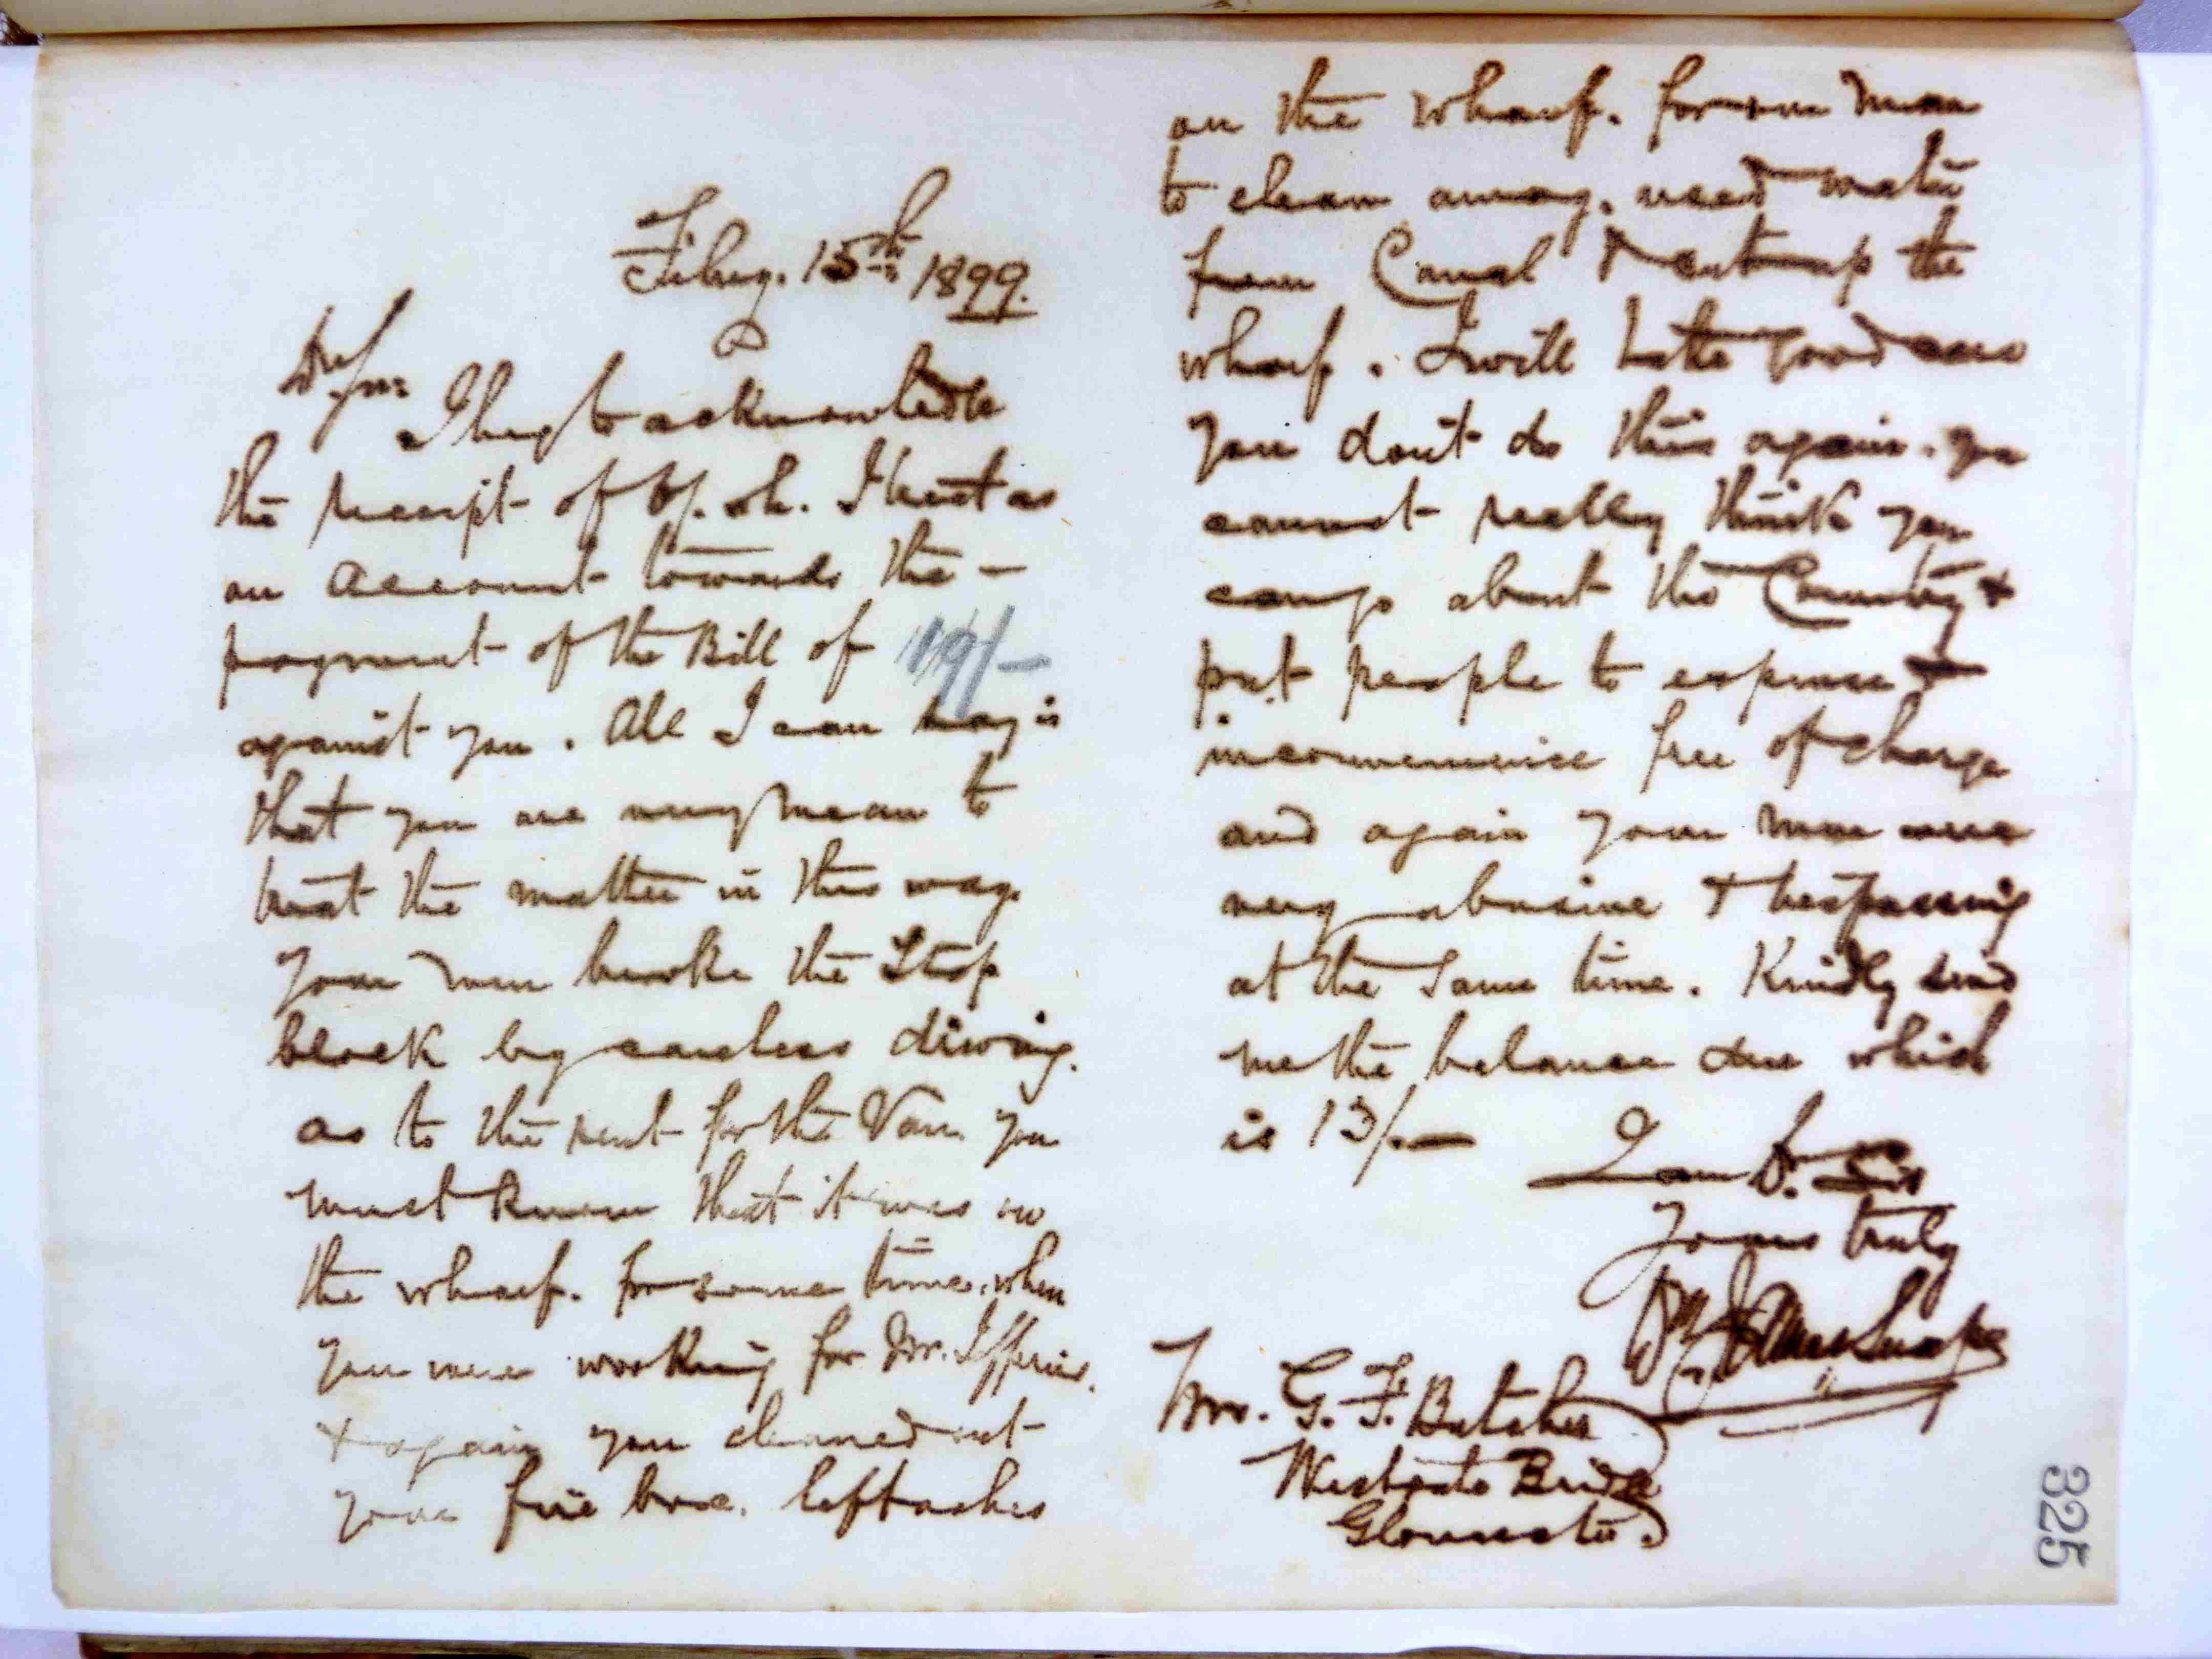 Feby. 15th 1899.
Dr Sir
I beg to acknowledge
the receipt of 6/. sh. I treat as
on account towards the —
payment of the Bill of 19/—
against you. All I can say is
that you are very mean to
treat the matter in this way.
your men broke the Stop
block by careless driving.
as to the rent for the Van you
must know that it was on
the wharf. for some time. when
you were working for Mr.
& again you cleaned out
your fire box. left ashes
on the wharf. for our man
to clean away. used water
from Canal & cut up the
wharf. I will take good care
you don't do this again. you
cannot really think you
can go about the Country &
put people to expense &
inconvenience free of charge
and again your men were
very abusive & trespassing
at the same time. Kindly send
me the balance due which
is 13/.—
I am Dr. Sir
Yours truly
Mr. G. F. Butcher
Westgate Bridge
Gloucester.
325